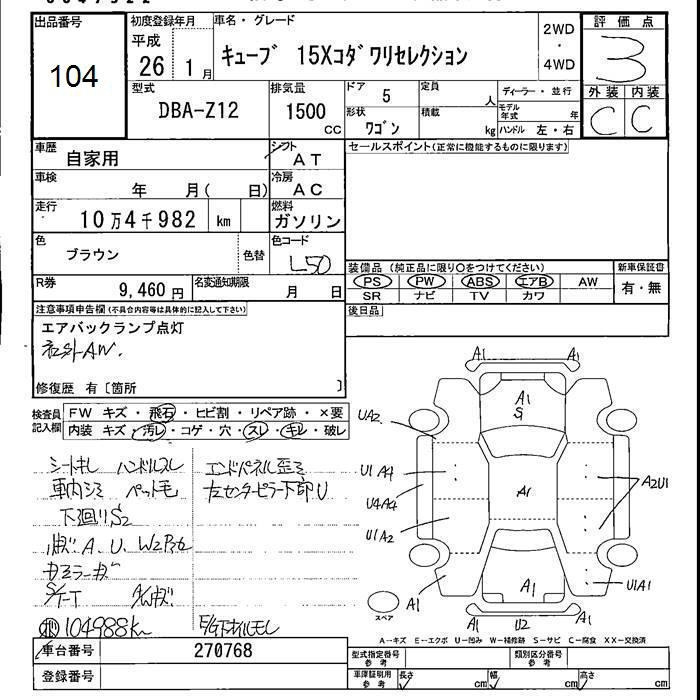 出品番号
104
初度登録年月
平成
26 1月
車名・グレード
キューブ 15Xコダワリセレクション
2WD
・
4WD
評価点
3
外装 内装
C C
型式
DBA-Z12
排気量
1500
CC
ドア 5
形状
ワゴン
定員
人
積載
kg
ディーラー・並行
モデル年式 年
ハンドル 左・右
車歴
自家用
シフト
AT
セールスポイント(正常に機能するものに限ります)
車検
年 月( 日)
冷房
AC
走行
10万4千982 km
燃料
ガソリン
色
ブラウン
色替
色コード
L50
装備品 (純正品に限り○をつけてください)
新車保証書
PS PW ABS エアB AW
有・無
SR ナビ TV カワ
R券
9,460円
名変通知期限
月 日
後日品
注意事項申告欄(不具合内容等は具体的に記入して下さい)
エアバックランプ点灯
社外AW.
修復歴 有〔箇所 〕
検査員記入欄
FW キズ・飛石・ヒビ割・リペア跡・×要
内装 キズ・汚レ・コゲ・穴・スレ・キレ・破レ
シートキレ ハンドルスレ
エンドパネル歪ミ
車内シミ ペット毛
左センターピラー下部U
下廻りS2
A. U. W2
カモラーキズ
104988km
A1
A1
S
UA2
U1 A4
U4A4
U1A2
A1
A2U1
A1
U1A1
A1
A1
U2
A1
スペア
A-キズ E-エクボ U-凹み W-補修跡 S-サビ C-腐食 XX-交換済
車台番号
270768
登録番号
型式指定番号
参考
類別区分番号
参考
車庫証明用
参考
長さ cm
幅 cm
高さ cm